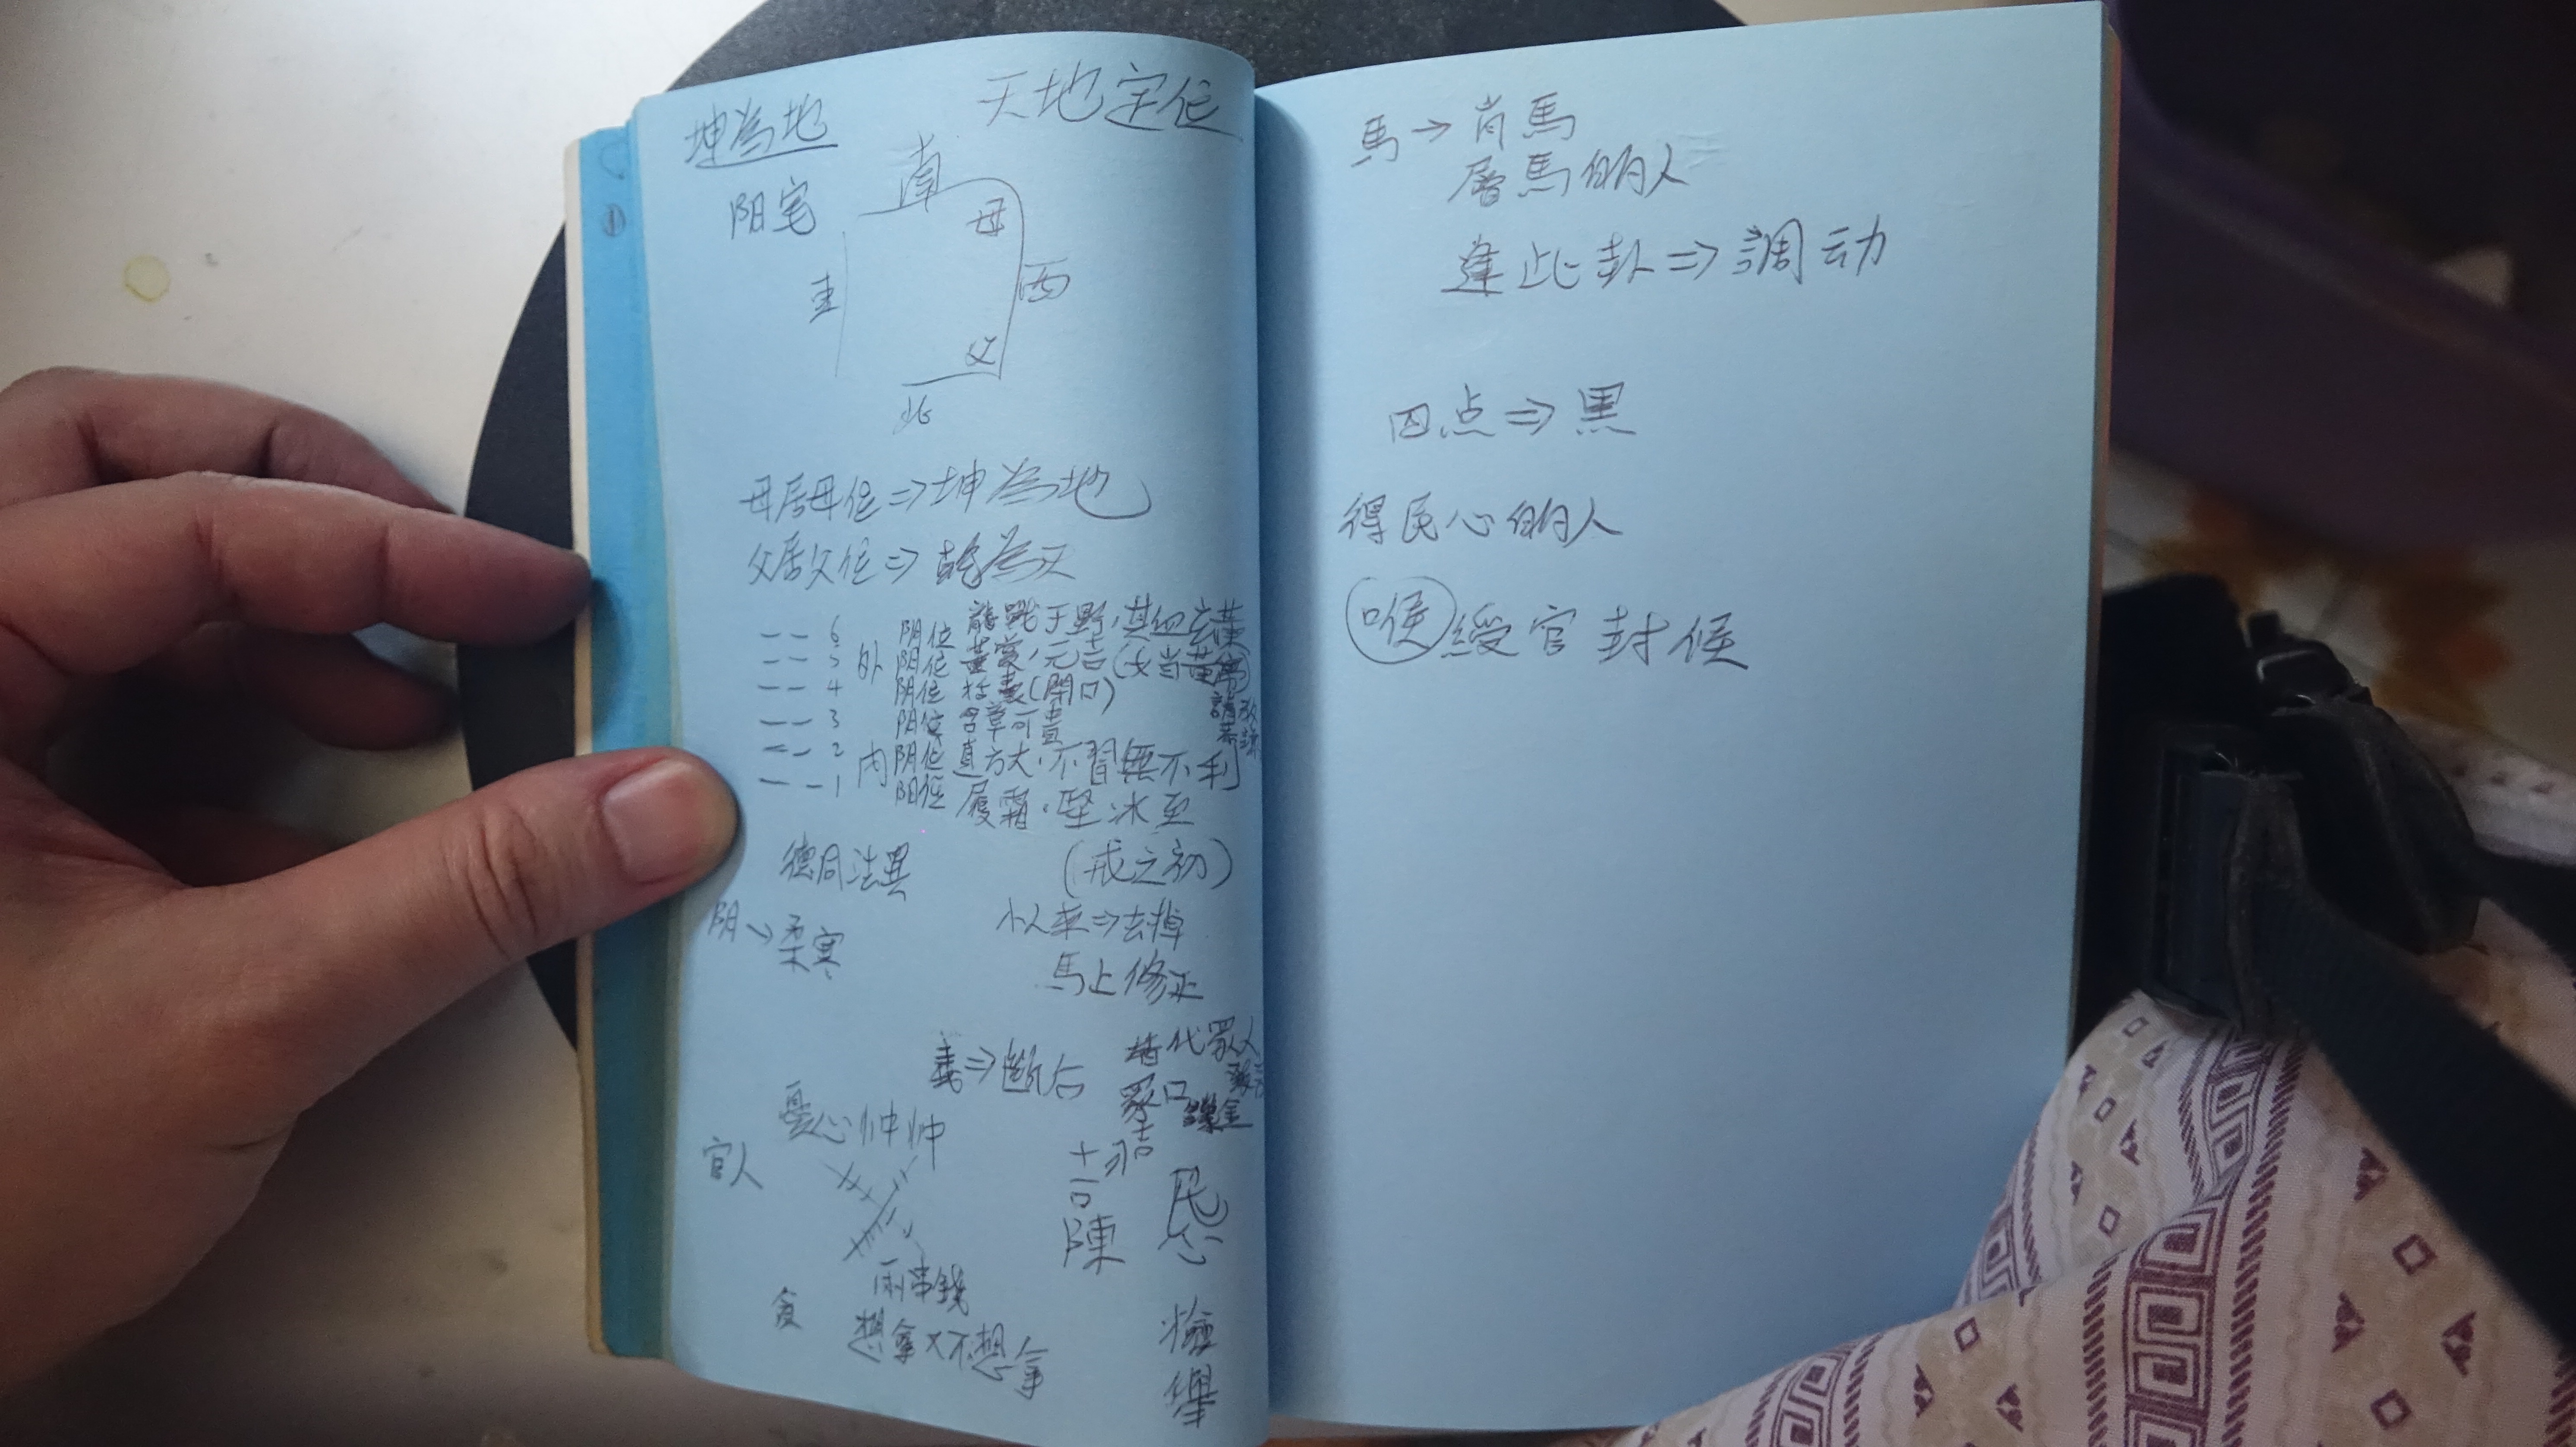 坤為地
天地定位
阳宅
南
母
西
父
北
母居母位⇒坤為地
父居父位⇒乾為天
6 阴位 龍戰于野,其血玄黃
5 外 阳位 黃裳,元吉
4 阴位 括囊(閉口)
3 阳位 含章可貞
2 内 阴位 直方大,不習無不利
1 阳位 履霜,堅冰至
德同法異
(戒之初)
阴→柔寒
小人來⇒去掉
馬上修正
⇒斷后
代眾人
眾口
憂心忡忡
官人
陳
民心
兩串錢
貪
想拿又不想拿
檢舉
馬→肖馬
屬馬的人
逢此卦⇒調动
四点⇒黑
得民心的人
喉 綬官封候